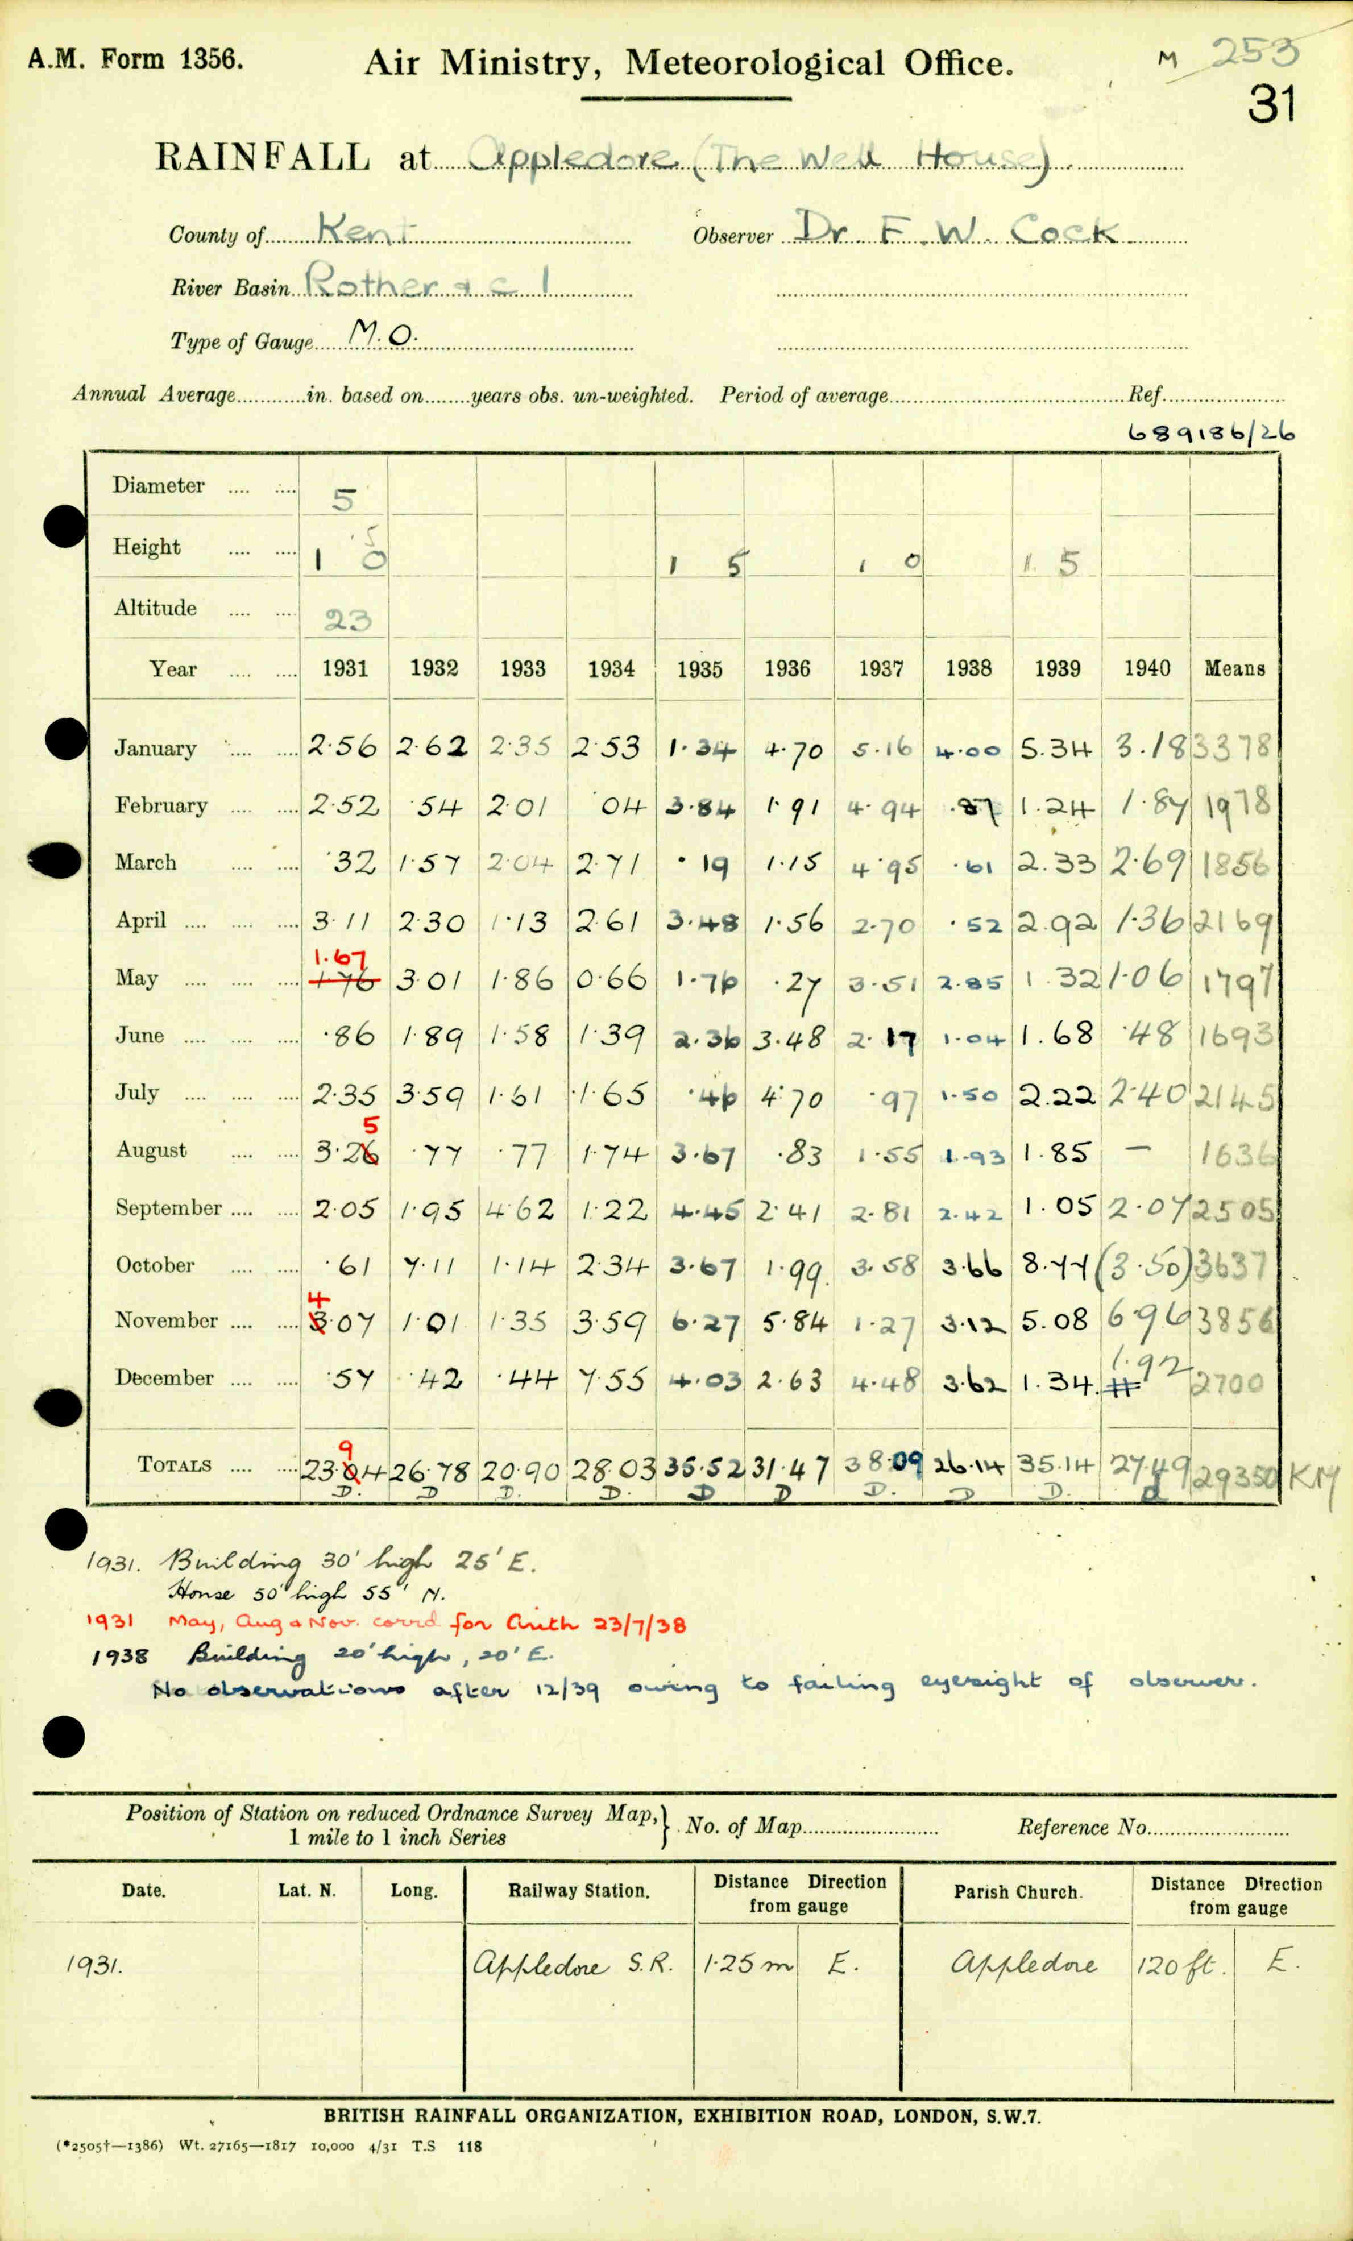 A.M. Form 1356. Air Ministry, Meteorological Office. M 253
31
RAINFALL at Appledore (The Well House)
County of Kent Observer Dr. F. W. Cock
River Basin Rother & c 1
Type of Gauge M.O.
Annual Average in. based on years obs. un-weighted. Period of average Ref.
689186/26
Diameter 5
Height 1 0 5 1 5 1 0 1 5
Altitude 23
Year 1931 1932 1933 1934 1935 1936 1937 1938 1939 1940 Means
January 2.56 2.62 2.35 2.53 1.34 4.70 5.16 4.00 5.34 3.18 3378
February 2.52 .54 2.01 .04 3.84 1.91 4.94 .87 1.24 1.87 1978
March .32 1.57 2.04 2.71 .19 1.15 4.95 .61 2.33 2.69 1856
April 3.11 2.30 1.13 2.61 3.48 1.56 2.70 .52 2.92 1.36 2169
1.67
May 1.76 3.01 1.86 0.66 1.76 .27 3.51 2.85 1.32 1.06 1797
June .86 1.89 1.58 1.39 2.36 3.48 2.17 1.04 1.68 .48 1693
July 2.35 3.59 1.61 1.65 .46 4.70 .97 1.50 2.22 2.40 2145
5
August 3.26 .77 .77 1.74 3.67 .83 1.55 1.93 1.85 — 1636
September 2.05 1.95 4.62 1.22 4.45 2.41 2.81 2.42 1.05 2.07 2505
October .61 7.11 1.14 2.34 3.67 1.99 3.58 3.66 8.77 (3.50) 3637
4
November 3.07 1.01 1.35 3.59 6.27 5.84 1.27 3.12 5.08 6.96 3856
December .57 .42 .44 7.55 4.03 2.63 4.48 3.62 1.34 1.92 2700
9
TOTALS 23.04 26.78 20.90 28.03 35.52 31.47 38.09 26.14 35.14 27.49 29350 KM
D. D D. D. D D D. D D. d
1931. Building 30' high 25' E.
House 50' high 55' N.
1931 May, Aug & Nov. corrd for Arith 23/7/38
1938 Building 20' high, 20' E.
No observations after 12/39 owing to failing eyesight of observer.
Position of Station on reduced Ordnance Survey Map, 1 mile to 1 inch Series } No. of Map Reference No.
Date. Lat. N. Long. Railway Station. Distance Direction from gauge Parish Church. Distance Direction from gauge
1931. Appledore S.R. 1.25 m E. Appledore 120 ft. E.
BRITISH RAINFALL ORGANIZATION, EXHIBITION ROAD, LONDON, S.W.7.
(*2505†—1386) Wt. 27165—1817 10,000 4/31 T.S 118